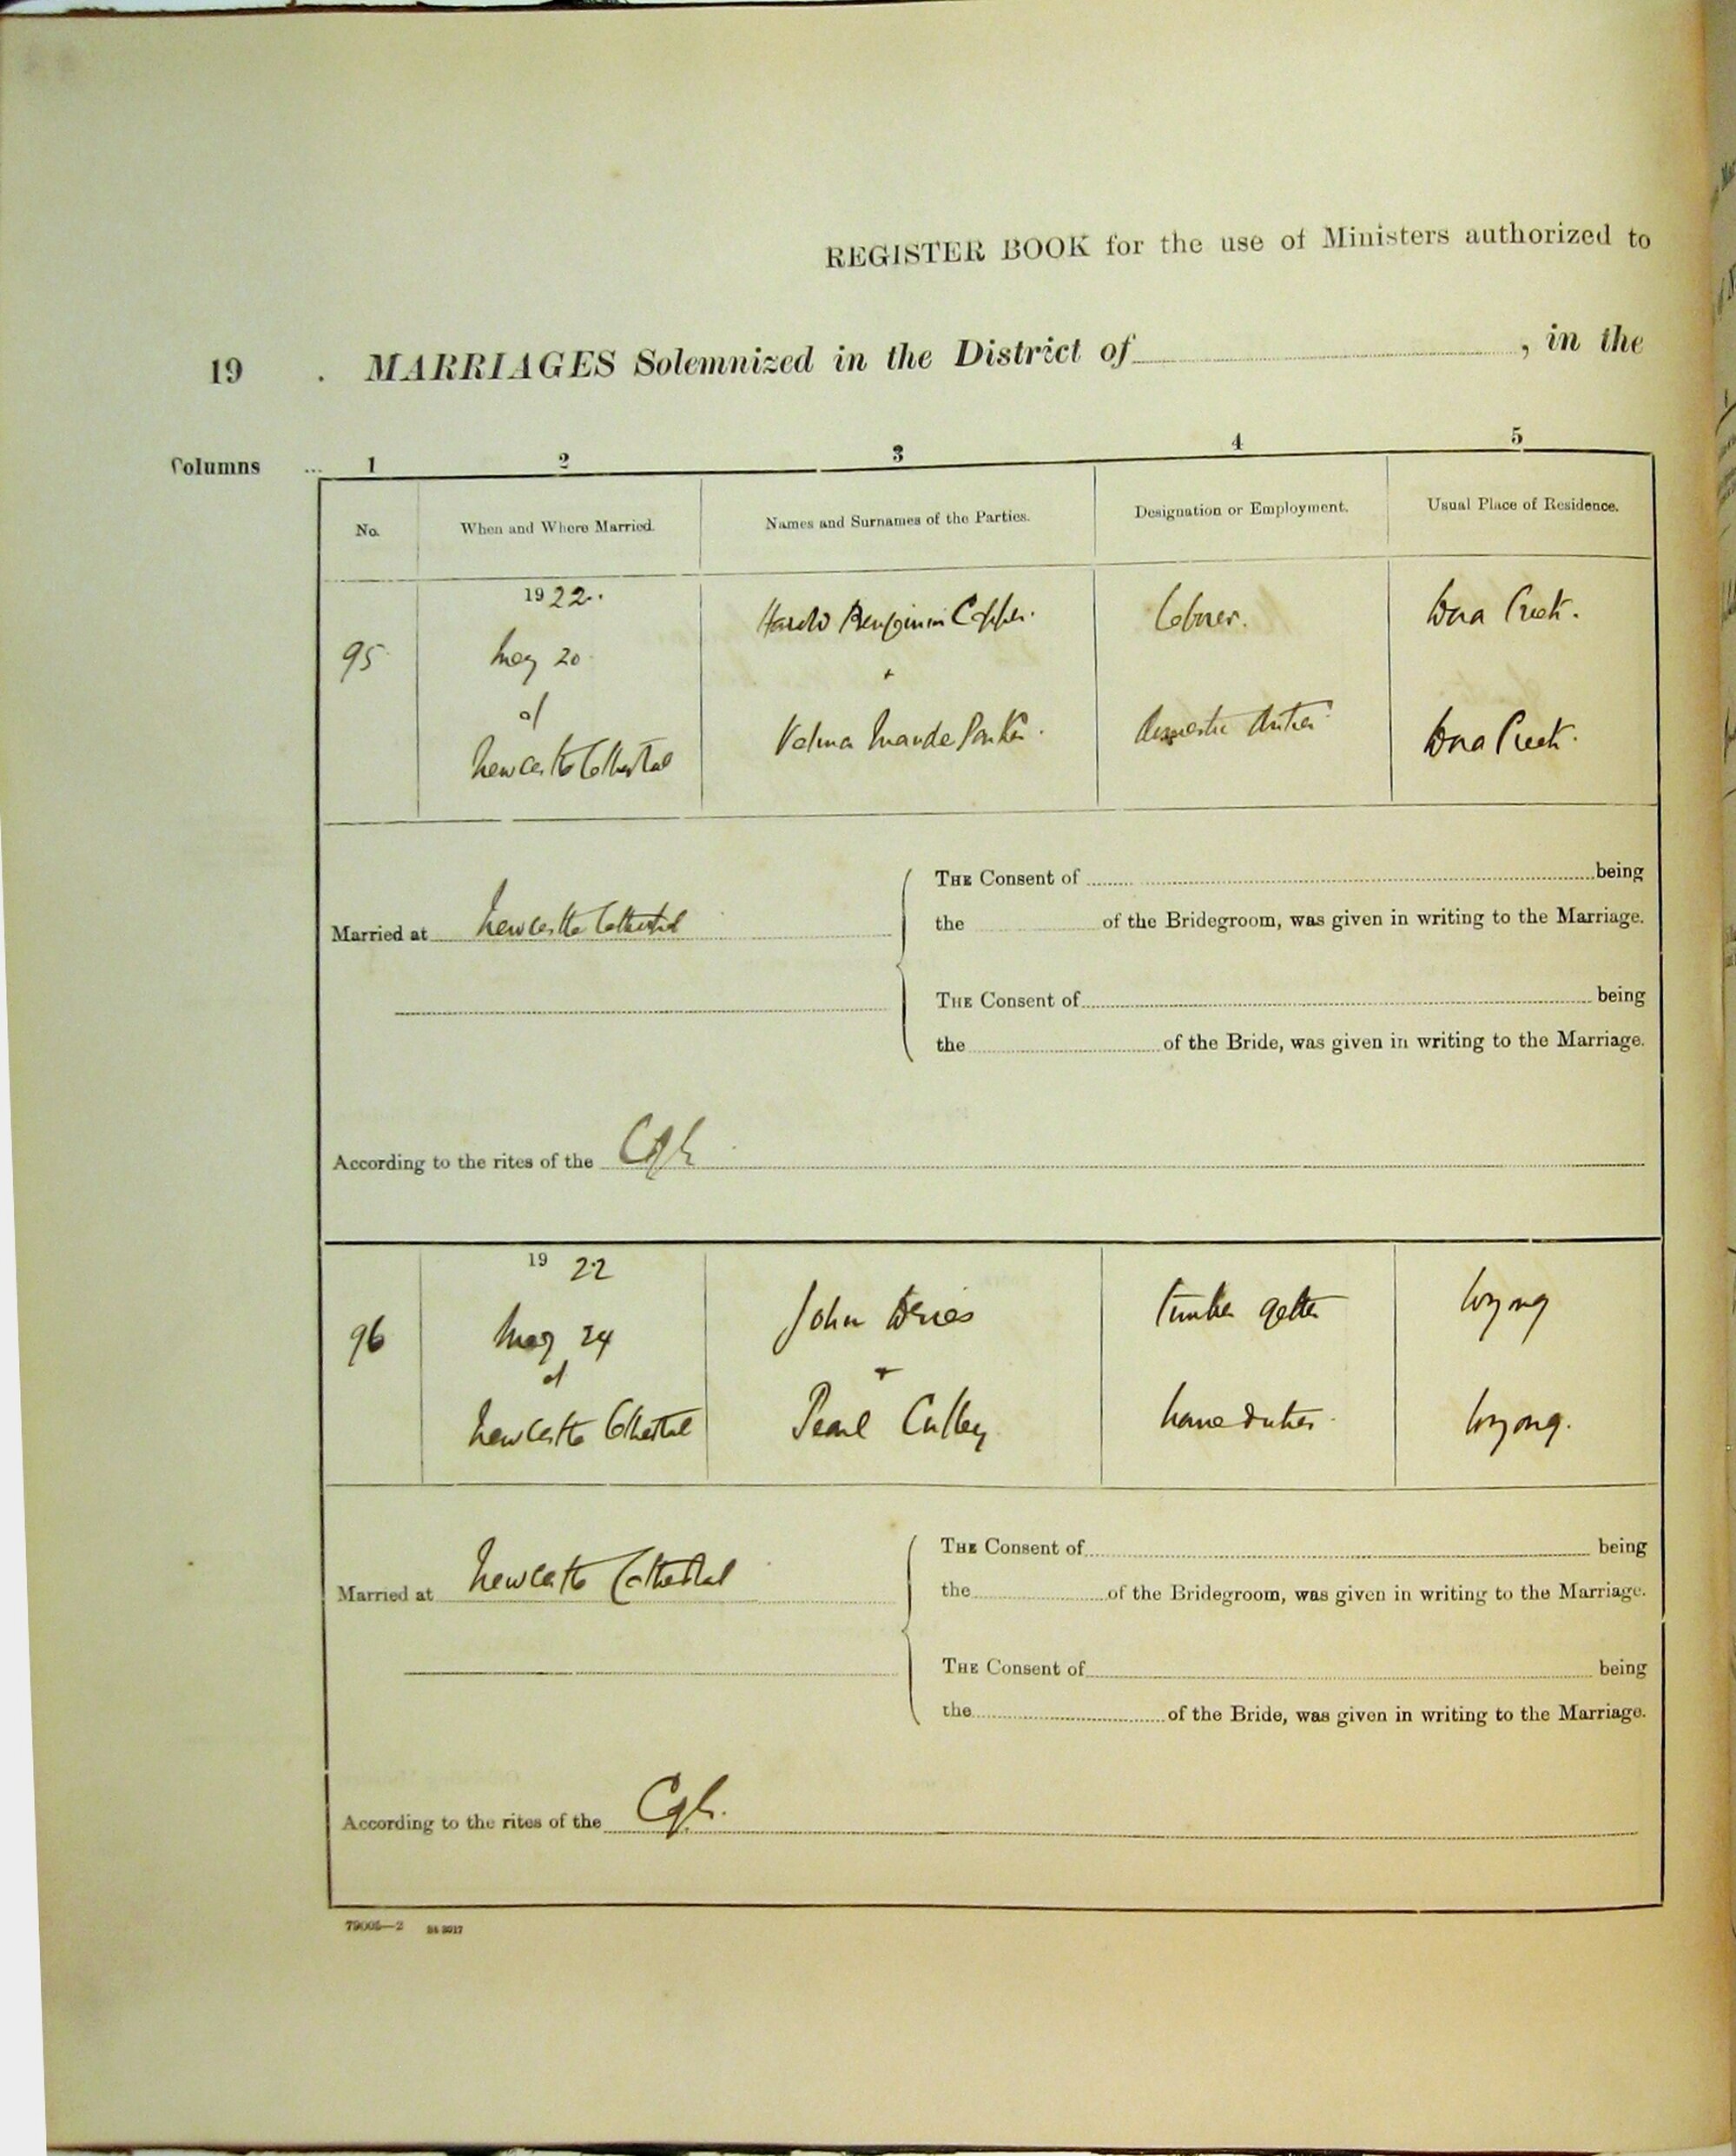 REGISTER BOOK for the use of Ministers authorized to
19 . MARRIAGES Solemnized in the District of , in the
Columns ... 1 2 3 4 5
No. When and Where Married. Names and Surnames of the Parties. Designation or Employment. Usual Place of Residence.
1922.
Harold Benjamin Copper. Laborer. Dora Creek.
95 May 20
+
at
Velma Maude Parker. domestic duties Dora Creek.
Newcastle Cathedral
THE Consent of being
Married at Newcastle Cathedral
the of the Bridegroom, was given in writing to the Marriage.
THE Consent of being
the of the Bride, was given in writing to the Marriage.
According to the rites of the CofE
19 22
John Timber getter Wyong
96 May 24
+
at
Newcastle Cathedral Pearl Culley home duties. Wyong.
THE Consent of being
Married at Newcastle Cathedral
the of the Bridegroom, was given in writing to the Marriage.
THE Consent of being
the of the Bride, was given in writing to the Marriage.
According to the rites of the CofE.
79005—2